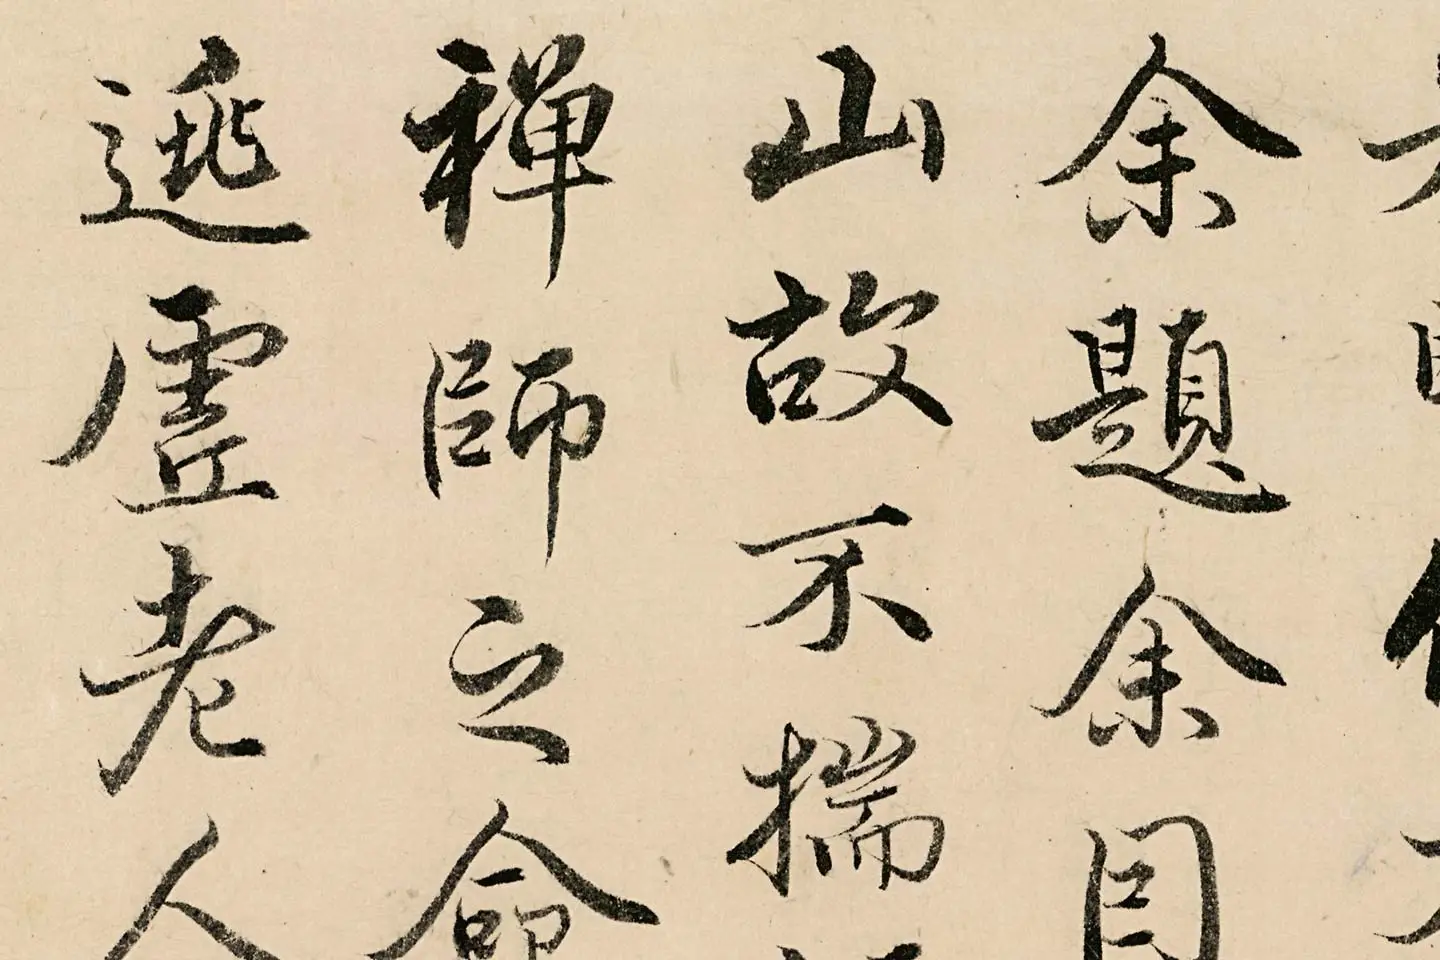 余題余目
山故不揣
禪師之命
逃虛老人